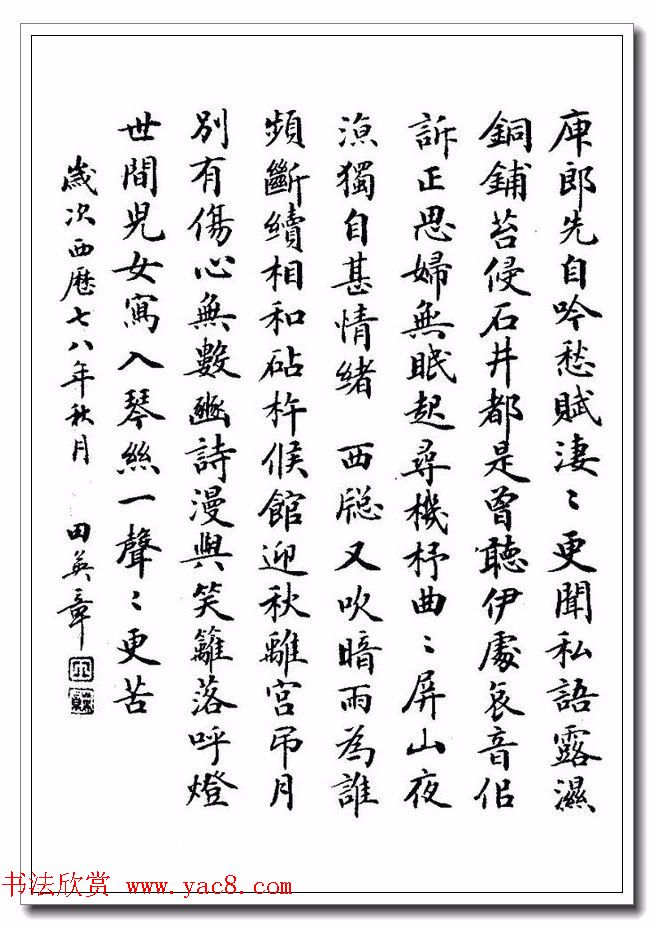 庾郎先自吟愁賦淒〻更聞私語露濕
銅鋪苔侵石井都是曾聽伊處哀音佀
訴正思婦無眠起尋機杼曲〻屏山夜
涼獨自甚情緒 西牕又吹暗雨為誰
頻斷續相和砧杵候館迎秋離宮吊月
別有傷心無數豳詩漫與笑籬落呼燈
世間兒女寫入琴絲一聲〻更苦
歲次西曆七八年秋月 田英章
书法欣赏 www.yac8.com